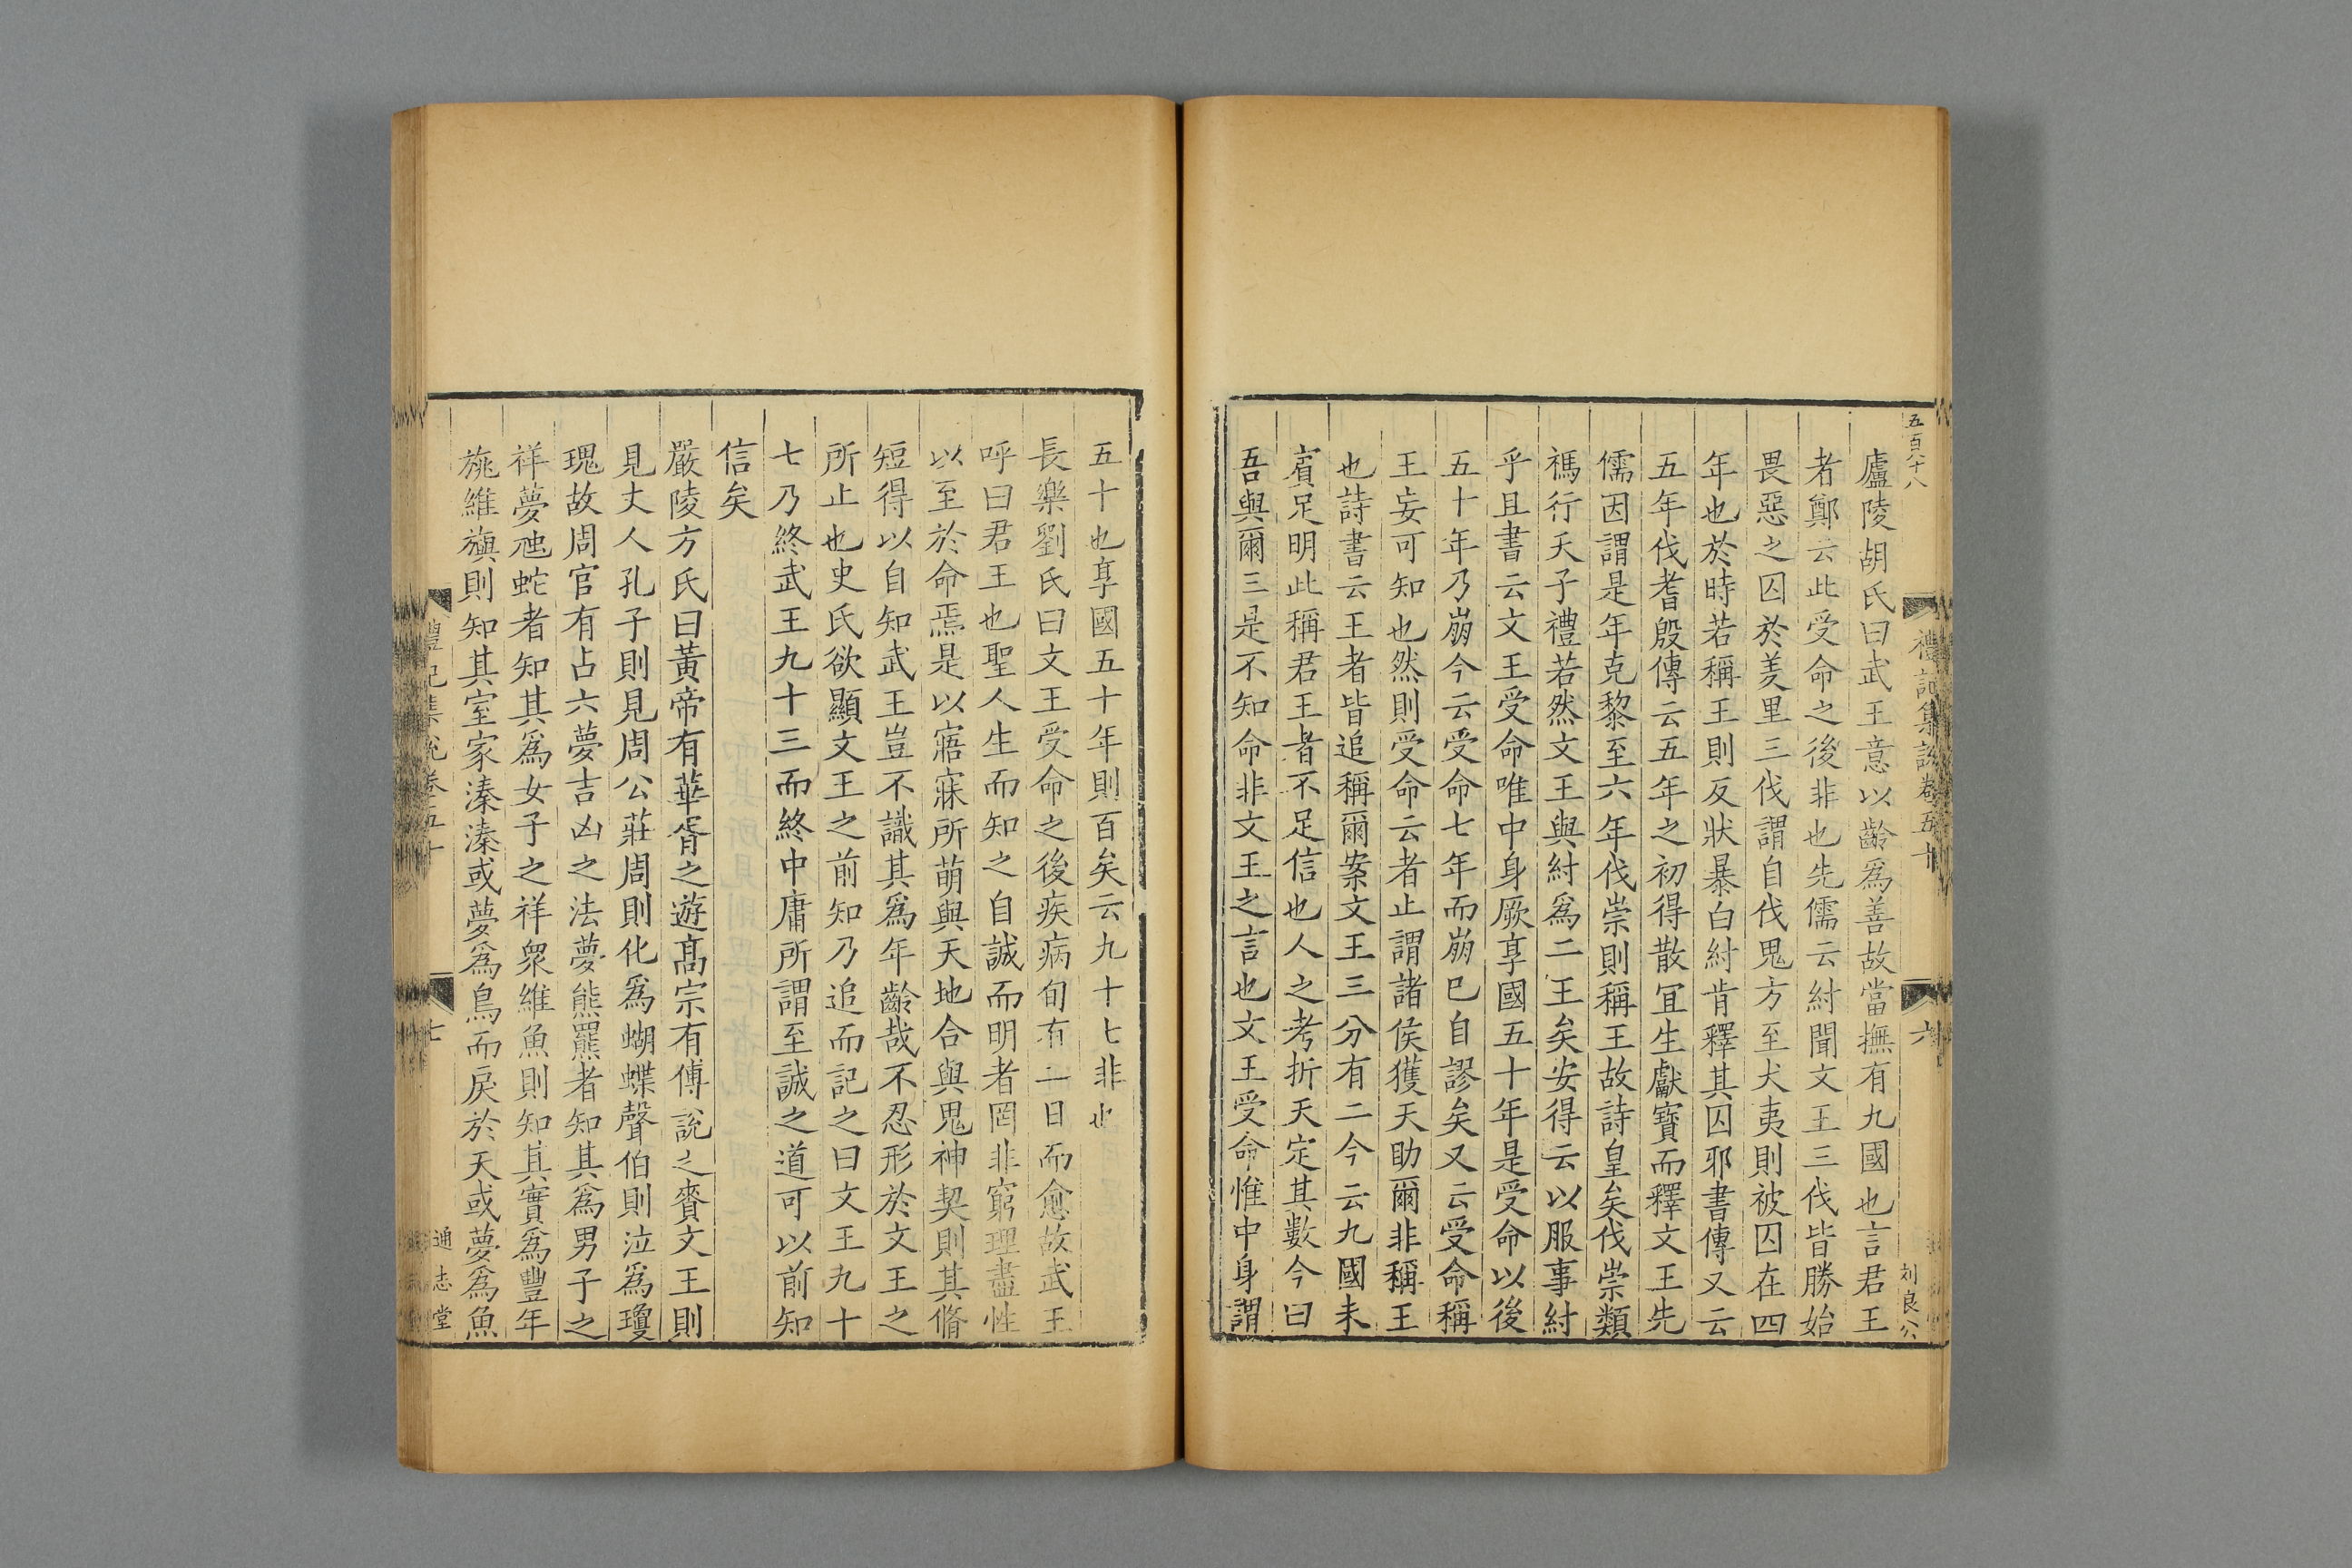 五百八十八
禮記集說卷五十
六
刘良公
廬陵胡氏曰武王意以齡爲善故當撫有九國也言君王
者鄭云此受命之後非也先儒云紂聞文王三伐皆勝始
畏惡之囚於羑里三伐謂自伐鬼方至犬夷則被囚在四
年也於時若稱王則反狀暴白紂肯釋其囚邪書傳又云
五年伐耆殷傳云五年之初得散冝生獻寶而釋文王先
儒因謂是年克黎至六年伐崇則稱王故詩皇矣伐崇類
禡行天子禮若然文王與紂爲二王矣安得云以服事紂
乎且書云文王受命唯中身厥享國五十年是受命以後
五十年乃崩今云受命七年而崩巳自謬矣又云受命稱
王妄可知也然則受命云者止謂諸侯獲天助爾非稱王
也詩書云王者皆追稱爾案文王三分有二今云九國未
賓足明此稱君王者不足信也人之考折天定其數今曰
吾與爾三是不知命非文王之言也文王受命惟中身謂
五十也享國五十年則百矣云九十七非也
長樂劉氏曰文王受命之後疾病旬有二日而愈故武王
呼曰君王也聖人生而知之自誠而明者罔非窮理盡性
以至於命焉是以寤寐所萌與天地合與鬼神契則其脩
短得以自知武王豈不識其爲年齡哉不忍形於文王之
所止也史氏欲顯文王之前知乃追而記之曰文王九十
七乃終武王九十三而終中庸所謂至誠之道可以前知
信矣
嚴陵方氏曰黃帝有華胥之遊髙宗有傅說之賚文王則
見丈人孔子則見周公莊周則化爲蝴蝶聲伯則泣爲瓊
瑰故周官有占六夢吉凶之法夢熊羆者知其爲男子之
祥夢虺蛇者知其爲女子之祥衆維魚則知其實爲豐年
旐維旟則知其室家溱溱或夢爲鳥而戾於天或夢爲魚
禮記集說卷五十
七
通志堂